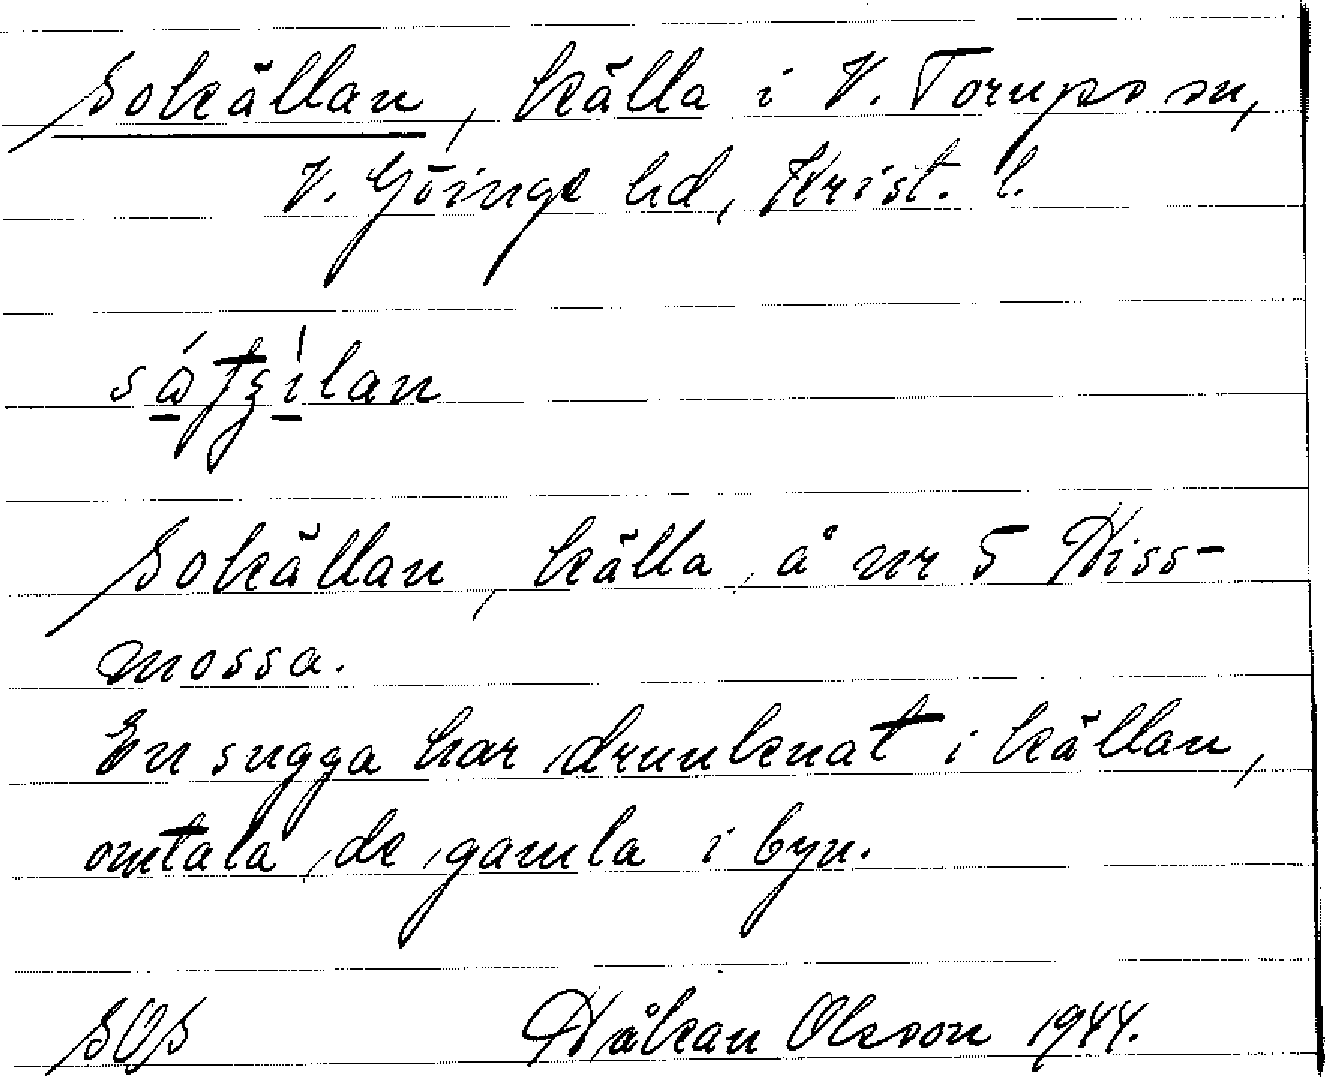 Sokällan, källa i V. Torups sn,
V. Göinge hd, Krist. l.
Sokällan, källa, å nr 5 Hiss-
mossa.
En sugga har drunknat i källan,
omtala de gamla i byn.
SOS Håkan Olsson 1944.